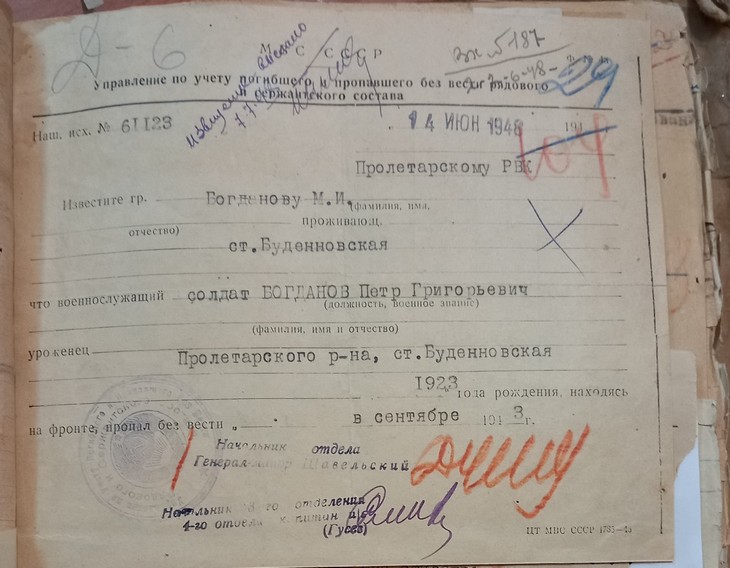 Д-6
М С СССР
вх №187
Управление по учету погибшего и пропавшего без вести рядового
и сержантского состава
Извещение выслано
Наш. исх. № 61123
14 ИЮН 1948 194
Пролетарскому РВК
104
Известите гр. Богданову М.И. (фамилия, имя,
проживающ.
отчество)
ст.Буденновская
что военнослужащий солдат БОГДАНОВ Петр Григорьевич
(должность, военное звание)
(фамилия, имя и отчество)
уроженец Пролетарского р-на, ст.Буденновская
1923 года рождения, находясь
на фронте, пропал без вести „ в сентябре 1943г.
Начальник отдела
Генерал-майор Шавельский
Начальник 3 го отделения
4-го отдела капитан а/с
(Гусев)
ЦТ МВС СССР